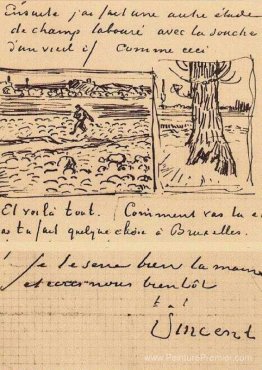 Ensuite j'ai fait une autre étude
de champs labouré avec la souche
d'un vieil if comme ceci
Et voilà tout. Comment vas tu et
as tu fait quelque chôse à Bruxelles.
je te serre bien la main
et écris nous bientôt
t. à t.
Vincent
www.PeinturePremier.com